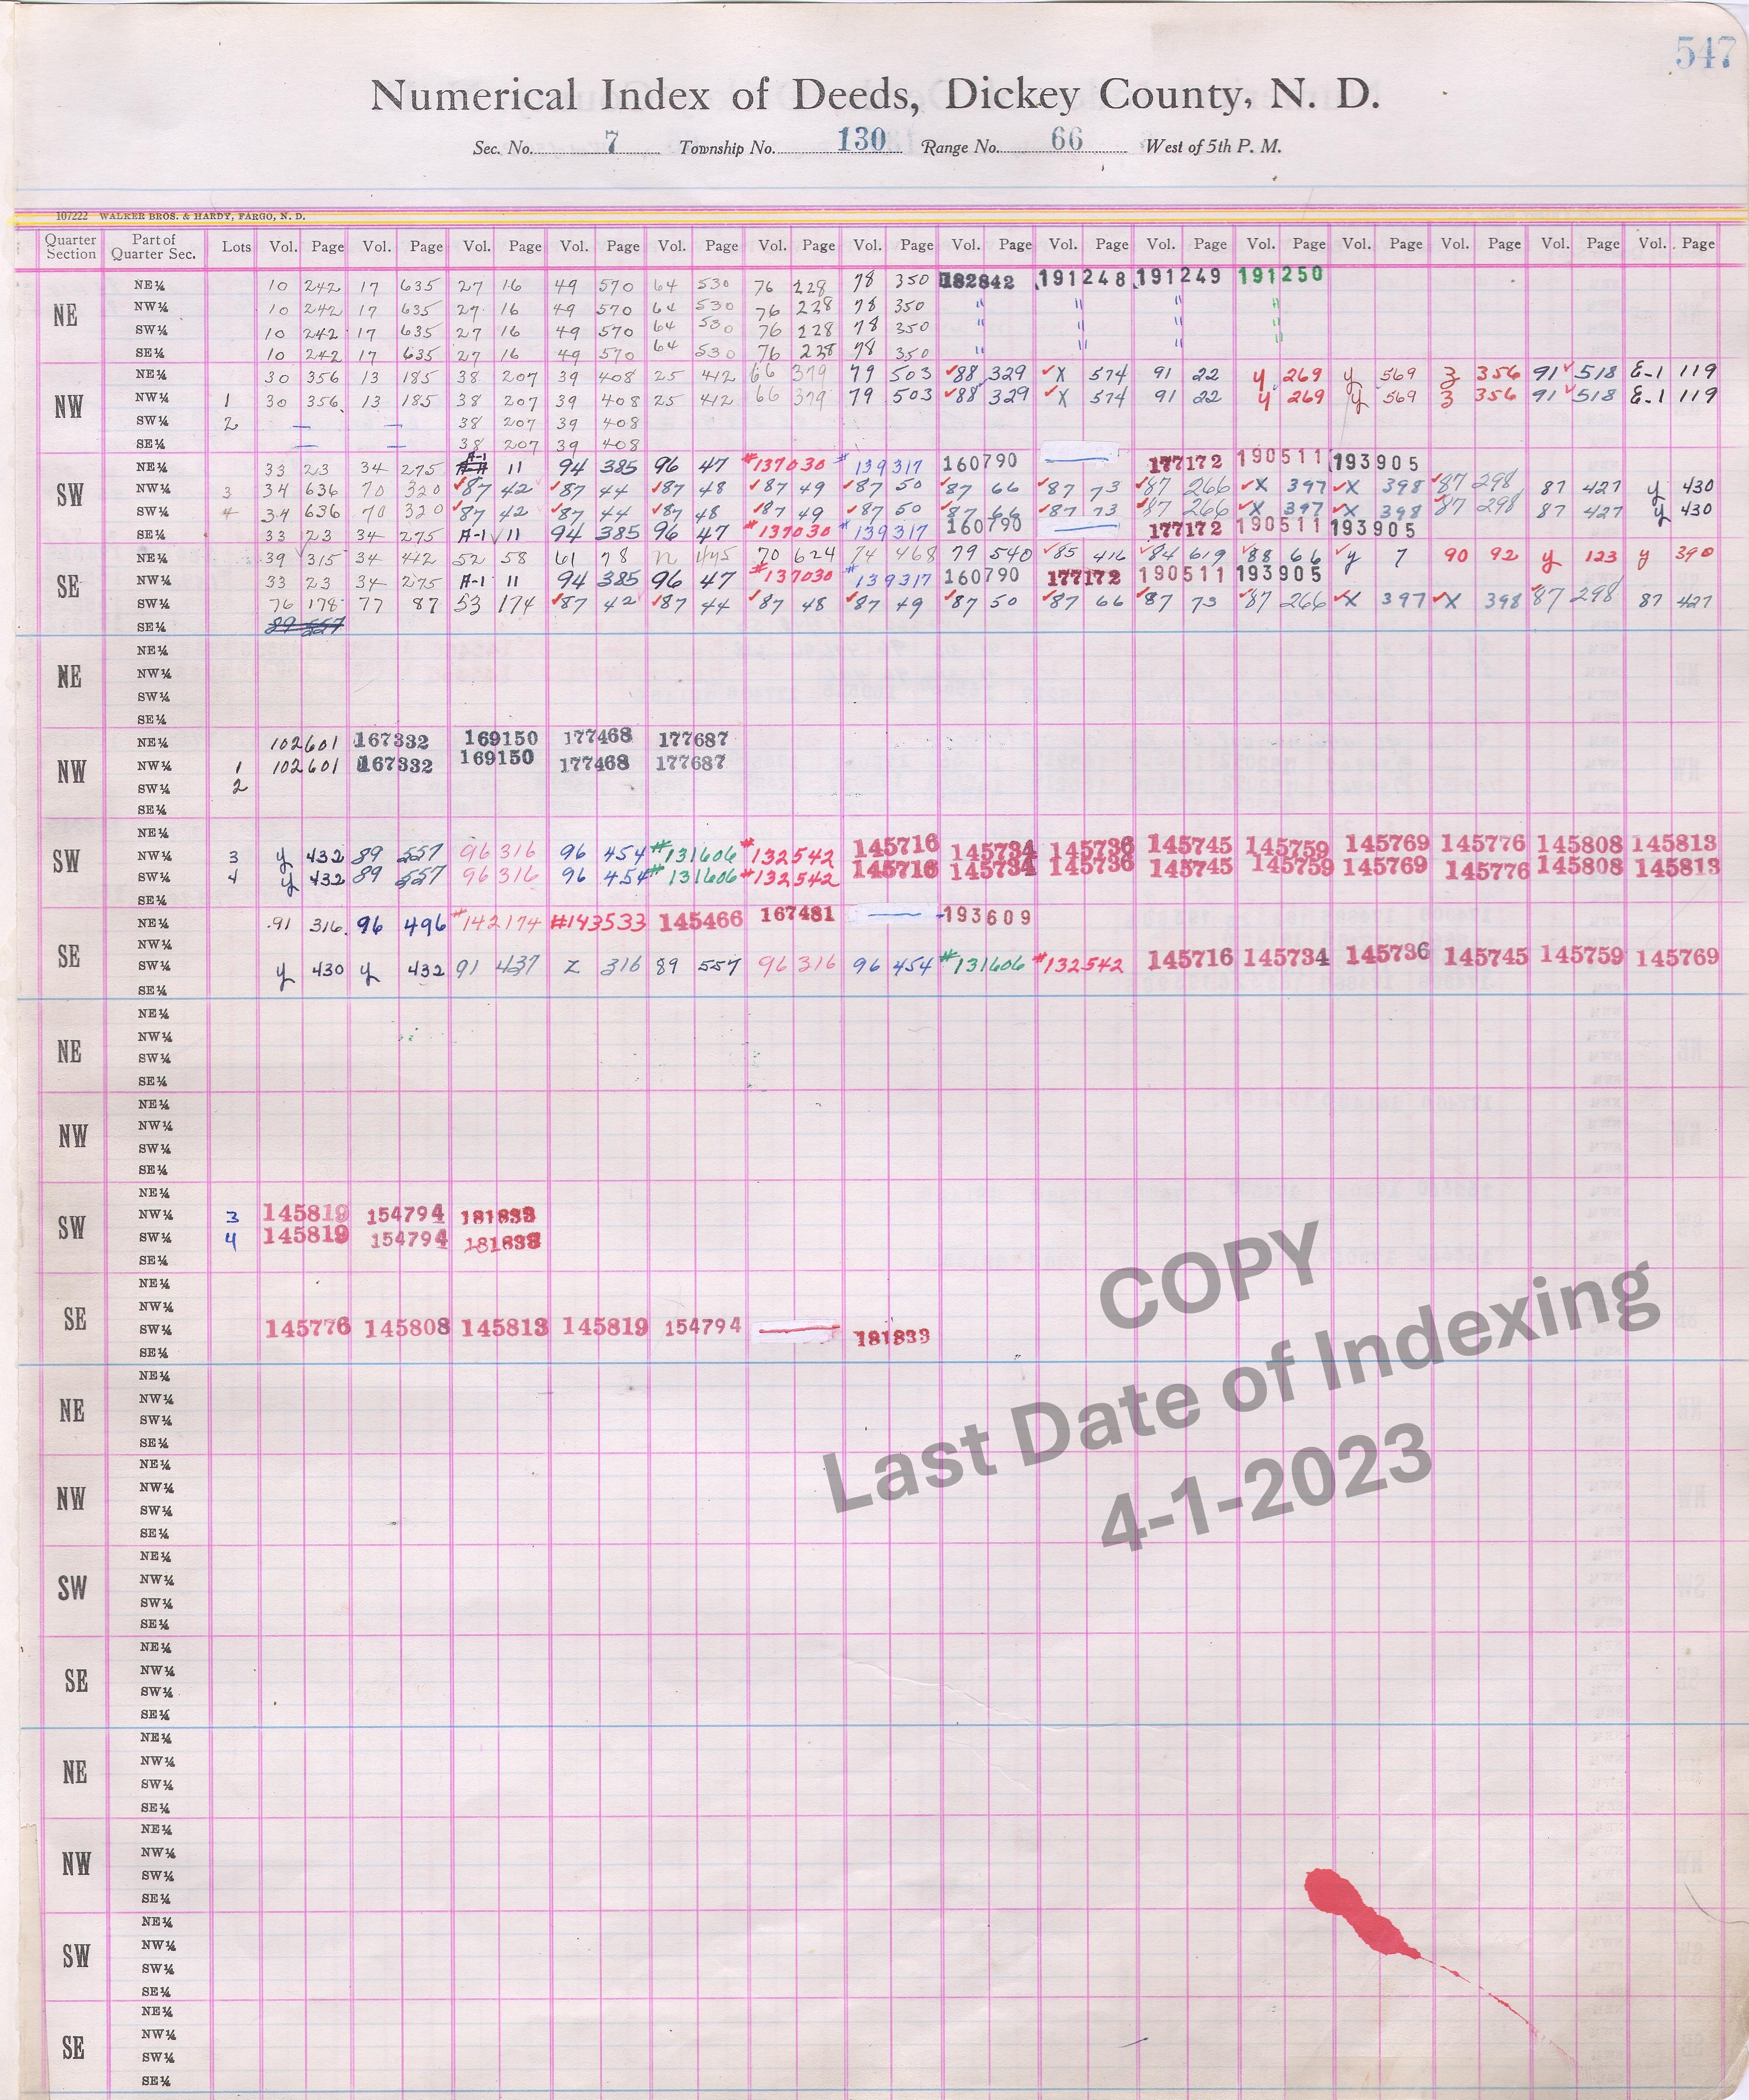 547
Numerical Index of Deeds, Dickey County, N. D.
Sec. No. 7 Township No. 130 Range No. 66 West of 5th P. M.
107222 WALKER BROS. & HARDY, FARGO, N. D.
Quarter Section Part of Quarter Sec. Lots Vol. Page Vol. Page Vol. Page Vol. Page Vol. Page Vol. Page Vol. Page Vol. Page Vol. Page Vol. Page Vol. Page Vol. Page Vol. Page Vol. Page Vol. Page
NE
NE¼ 10 242 17 635 27 16 49 570 64 530 76 228 78 350 182842 191248 191249 191250
NW¼ 10 242 17 635 27 16 49 570 64 530 76 228 78 350 " " " "
SW¼ 10 242 17 635 27 16 49 570 64 530 76 228 78 350 " " " "
SE¼ 10 242 17 635 27 16 49 570 64 530 76 228 78 350 " " " "
NW
NE¼ 30 356 13 185 38 207 39 408 25 412 66 379 79 503 ✓88 329 ✓X 574 91 22 y 269 y 569 3 356 91 ✓518 E-1 119
NW¼ 1 30 356 13 185 38 207 39 408 25 412 66 379 79 503 ✓88 329 ✓X 574 91 22 y 269 y 569 3 356 91 ✓518 E-1 119
SW¼ 2 — — 38 207 39 408
SE¼ — — 38 207 39 408
SW
NE¼ 33 23 34 275 A-1 11 94 385 96 47 #137030 #139317 160790 — 177172 190511 193905
NW¼ 3 34 636 70 320 ✓87 42 ✓87 44 ✓87 48 ✓87 49 ✓87 50 ✓87 66 ✓87 73 ✓87 266 ✓X 397 ✓X 398 ✓87 298 87 427 y 430
SW¼ 4 34 636 70 320 ✓87 42 ✓87 44 ✓87 48 ✓87 49 ✓87 50 ✓87 66 ✓87 73 ✓87 266 ✓X 397 ✓X 398 ✓87 298 87 427 y 430
SE¼ 33 23 34 275 A-1 ✓ 11 94 385 96 47 #137030 #139317 160790 — 177172 190511 193905
SE
NE¼ 39 ✓315 34 412 52 58 61 78 n 445 70 624 74 468 79 540 ✓85 416 ✓84 619 ✓88 66 ✓y 7 90 92 y 123 y 390
NW¼ 33 23 34 275 A-1 11 94 385 96 47 #137030 #139317 160790 177172 190511 193905
SW¼ 76 178 77 87 53 174 ✓87 42 ✓87 44 ✓87 48 ✓87 49 ✓87 50 ✓87 66 ✓87 73 ✓87 266 ✓X 397 ✓X 398 ✓87 298 87 427
SE¼ 89 557
NE
NE¼
NW¼
SW¼
SE¼
NW
NE¼ 102601 167332 169150 177468 177687
NW¼ 1 102601 167332 169150 177468 177687
SW¼ 2
SE¼
SW
NE¼
NW¼ 3 y 432 89 557 96 316 96 454 #131606 #132542 145716 145734 145736 145745 145759 145769 145776 145808 145813
SW¼ 4 y 432 89 557 96 316 96 454 #131606 #132542 145716 145734 145736 145745 145759 145769 145776 145808 145813
SE¼
SE
NE¼ 91 316 96 496 #142174 #143533 145466 167481 — 193609
NW¼
SW¼ y 430 y 432 91 437 Z 316 89 557 96 316 96 454 #131606 #132542 145716 145734 145736 145745 145759 145769
SE¼
NE
NE¼
NW¼
SW¼
SE¼
NW
NE¼
NW¼
SW¼
SE¼
SW
NE¼
NW¼ 3 145819 154794 181833
SW¼ 4 145819 154794 181833
SE¼
SE
NE¼
NW¼
SW¼ 145776 145808 145813 145819 154794 — 181833
SE¼
NE
NE¼
NW¼
SW¼
SE¼
NW
NE¼
NW¼
SW¼
SE¼
SW
NE¼
NW¼
SW¼
SE¼
SE
NE¼
NW¼
SW¼
SE¼
NE
NE¼
NW¼
SW¼
SE¼
NW
NE¼
NW¼
SW¼
SE¼
SW
NE¼
NW¼
SW¼
SE¼
SE
NE¼
NW¼
SW¼
SE¼
COPY
Last Date of Indexing
4-1-2023